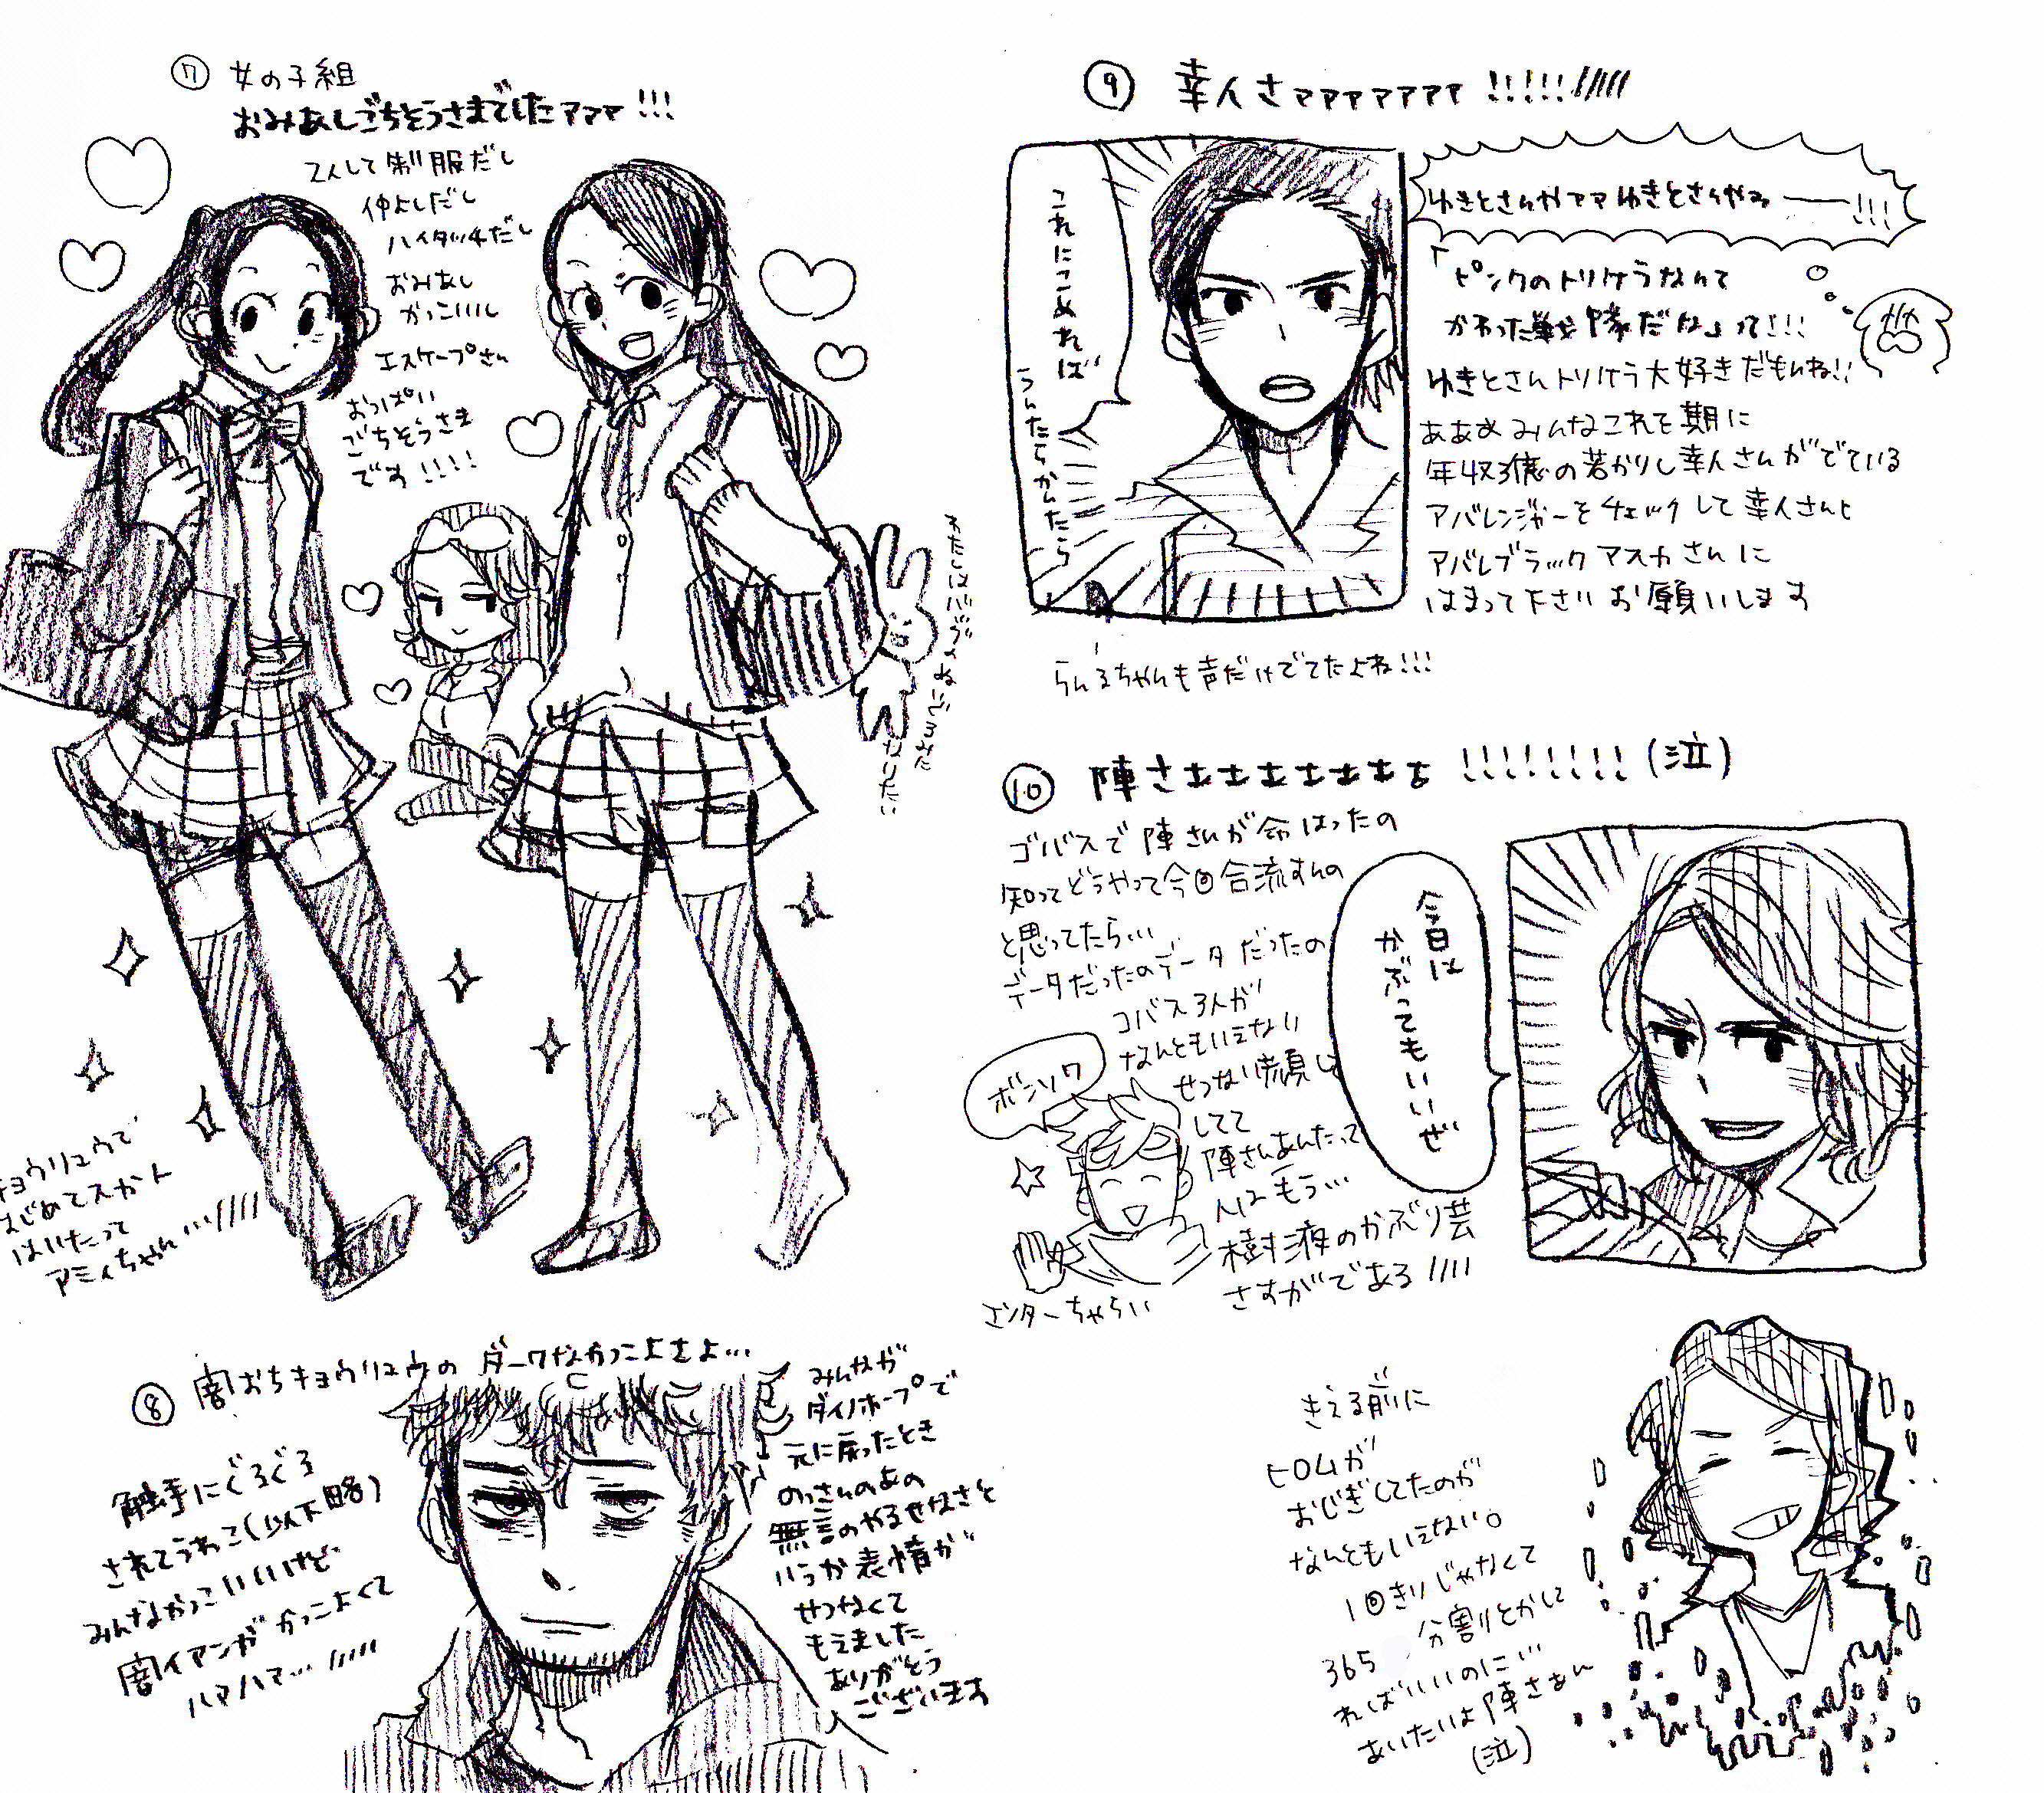 ⑦ 女の子組
おみあしごちそうさまでしたァァァ!!!
2人して制服だし
仲よしだし
ハイタッチだし
おみあし
かっこいいし
エスケープさん
おっぱい
ごちそうさま
です!!!!
わたしはバブみねいどろみた
なりたい
キョウリュウで
はじめてスカート
はいたって
アミィちゃん…////
⑧ 闇おちキョウリュウの ダークなかっこよさよ…
触手にぐるぐる
されてうわこ(以下略)
みんなかっこいいけど
闇イアンが かっこよくて
ハァハァ… /////
みんなが
ダイノホープで
元に戻ったとき
のっさんのあの
無言のやるせなさと
いうか表情が
せつなくて
もえました
ありがとう
ございます
⑨ 幸人さァァァァァァァ!!!!!/////
これにこめれば
うんたらかんたら
ゆきとさんやァァゆきとさんやみ――!!!
「ピンクのトリケラなんて
かわった戦隊だな」って!!!
ゆきとさんトリケラ大好きだもんね!!
あああみんなこれを期に
年収3億の若かりし幸人さんがでている
アバレンジャーをチェックして幸人さんと
アバレブラックアスカさんに
はまって下さいお願いします
らんるちゃんも声だけでてたよね!!!
⑩ 陣さぁぁぁぁぁぁぁ!!!!!!!!(泣)
ゴバスで陣さんが命はったの
知ってどうやって今回合流すんの
と思ってたら…
データだったのデータだったの
ゴバス3人が
なんともいえない
せつない顔し
してて
陣さんあんたって
人はもう…
樹液のかぶり芸
さすがである////
今日は
かぶってもいいぜ
ボンソワ
エンターちゃらい
きえる前に
ヒロムが
おじぎしてたのが
なんともいえない。
1回きりじゃなくて
365分割とかして
ればいいのにい
あいたいよ陣さぁん
(泣)